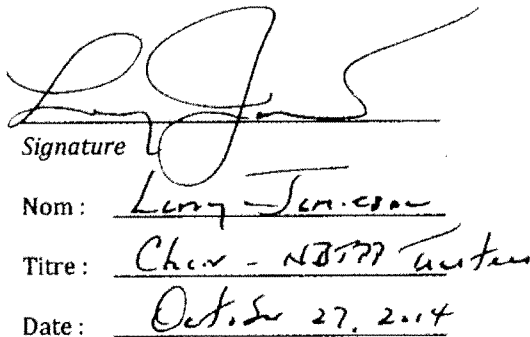 Signature
Nom : Larry Jamieson
Titre : Chair - NBTPP Trustees
Date : October 27, 2014